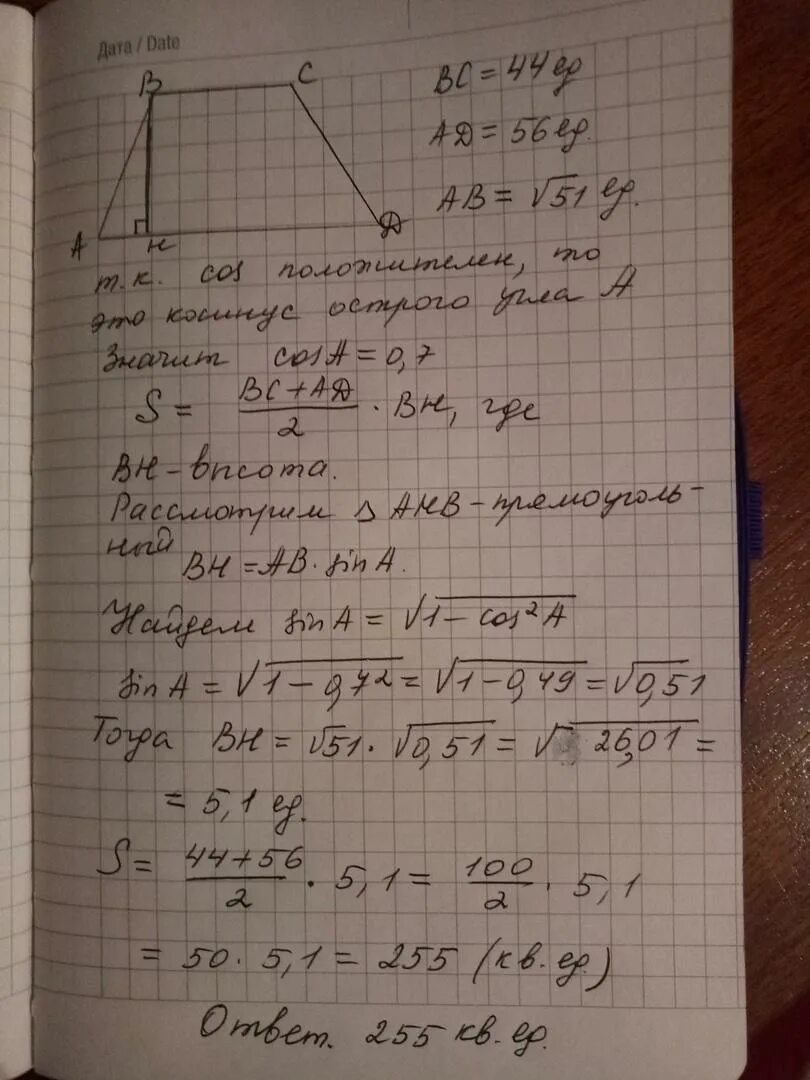 Дата / Date
B
C
A
H
D
BC = 44 ед
AD = 56 ед.
AB = √51 ед.
т.к. cos положителен, то
это косинус острого угла A
Значит cosA = 0,7
S = (BC + AD)/2 · BH, где
BH – высота.
Рассмотрим △ AHB – прямоуголь-
ный
BH = AB · sin A.
Найдем sin A = √(1 – cos²A)
sin A = √(1 – 0,7²) = √(1 – 0,49) = √0,51
Тогда BH = √51 · √0,51 = √26,01 =
= 5,1 ед.
S = (44 + 56)/2 · 5,1 = 100/2 · 5,1
= 50 · 5,1 = 255 (кв. ед.)
Ответ. 255 кв. ед.